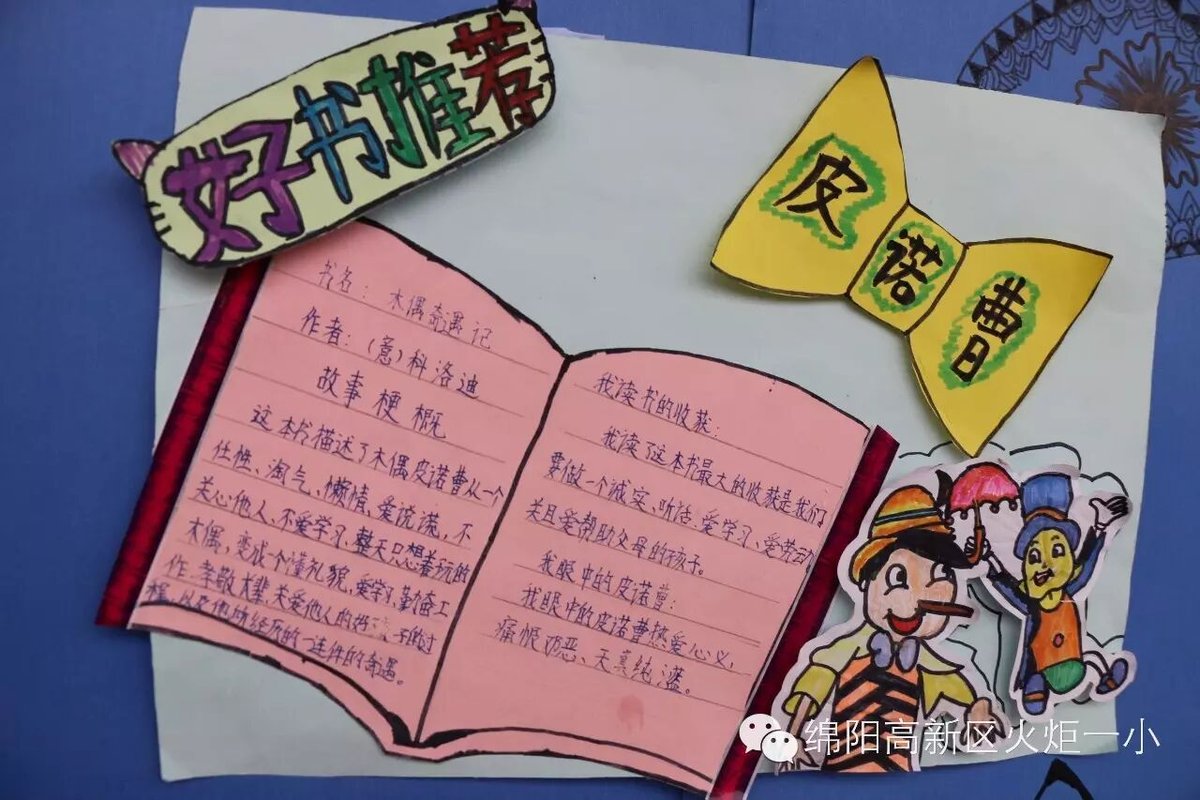 好书推荐
皮诺曹
书名：木偶奇遇记
作者：(意)科洛迪
故事梗概
这本书描述了木偶皮诺曹从一个
任性、淘气、懒惰、爱说谎、不
关心他人、不爱学习、整天只想着玩的
木偶，变成一个懂礼貌、爱学习、勤奋工
作、孝敬大辈、关爱他人的好孩子的过
程，以及他所经历的一连件的奇遇。
我读书的收获：
我读了这本书最大的收获是我们
要做一个诚实、听话、爱学习、爱劳动
并且爱帮助父母的孩子。
我眼中的皮诺曹：
我眼中的皮诺曹热爱心义，
痛恨邪恶、天真纯滥。
绵阳高新区火炬一小